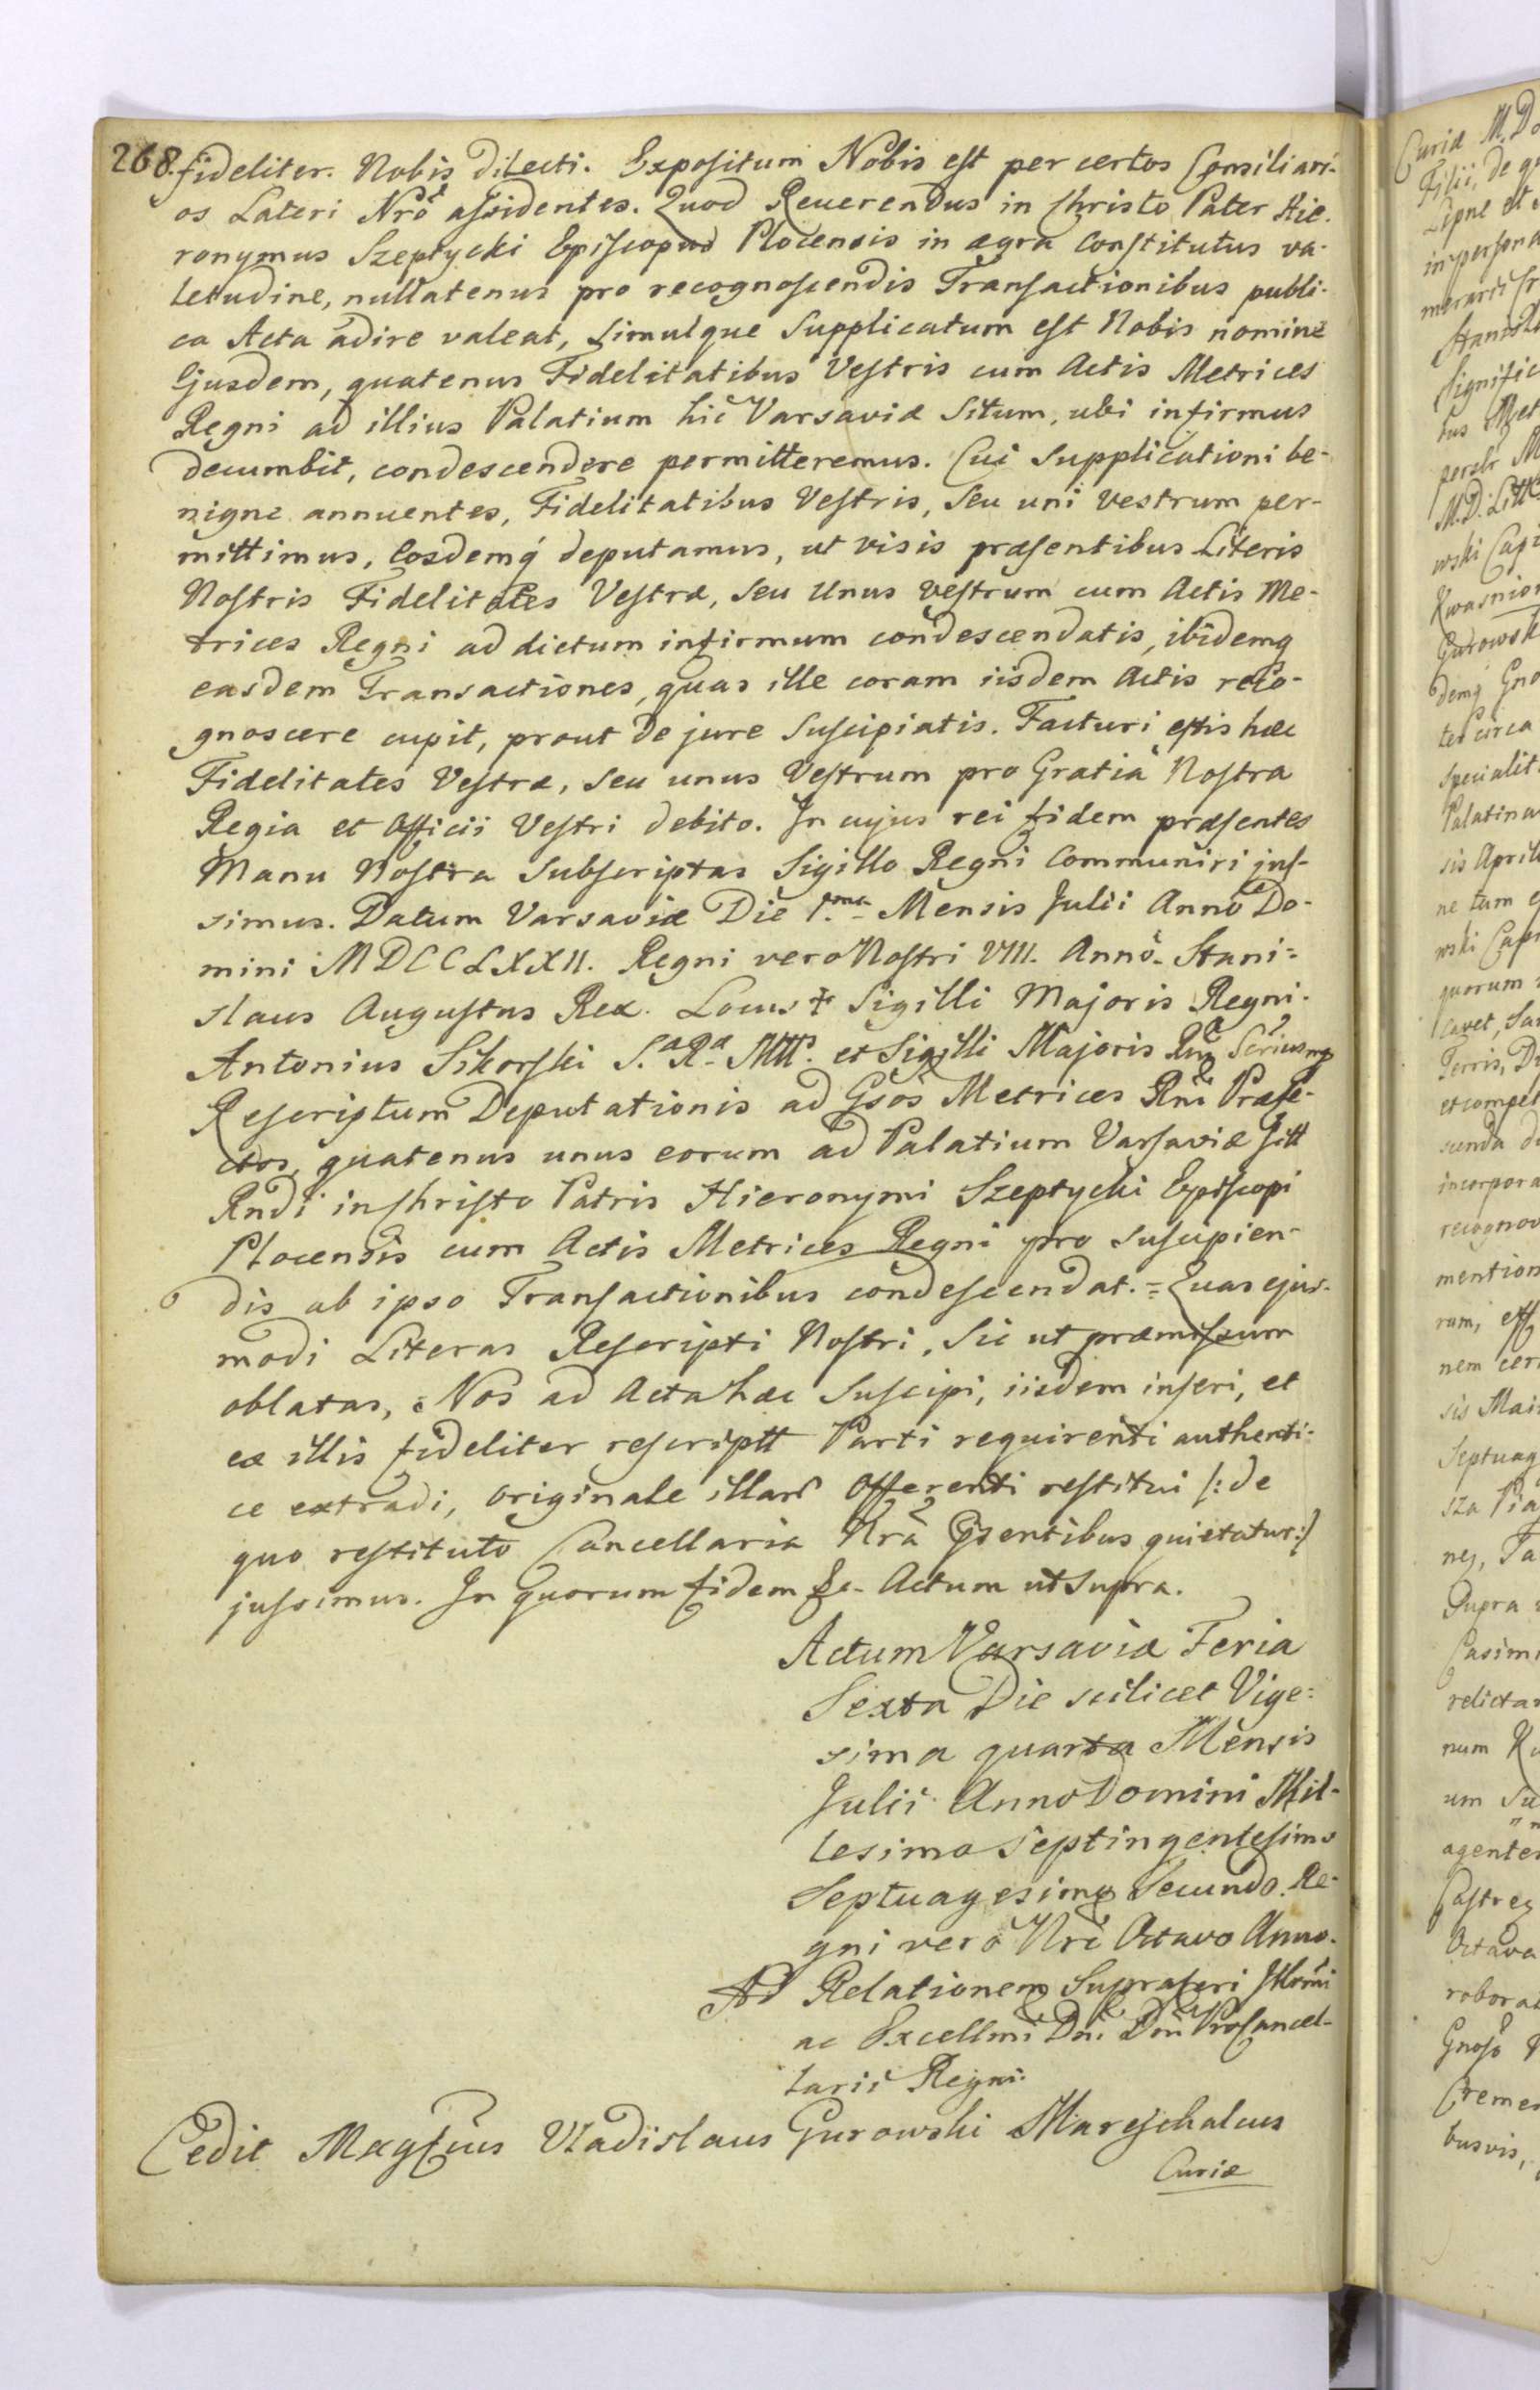 268. fideliter. Nobis dilecti. Expositum Nobis est per certos Consiliari-
os Lateri Nrô assidentes. Quod Reuerendus in Christo Pater Hie-
ronymus Szeptycki Episcopus Plocensis in ægra Constitutus va-
letudine, nullatenus pro recognoscendis Transactionibus publi-
ca Acta adire valeat, simulque Supplicatum est Nobis nomine
Ejusdem, quatenus Fidelitatibus Vestris cum Actis Metrices
Regni ad illius Palatium hic Varsaviæ Situm, ubi infirmus
decumbit, condescendere permitteremus. Cui Supplicationi be-
nigne annuentes, Fidelitatibus Vestris, Seu uni Vestrum per-
mittimus, Eosdemq́ deputamus, ut visis præsentibus Literis
Nostris Fidelitates Vestræ, Seu Unus Vestrum cum Actis Me-
trices Regni ad dictum infirmum condescendatis, ibidemq
easdem Transactiones, quas ille coram iisdem Actis reco-
gnoscere cupit, prout de jure Suscipiatis. Facturi estis hæc
Fidelitates Vestræ, Seu unus Vestrum pro Gratia Nostra
Regia et Officii Vestri debito. In cujus rei fidem præsentes
Manu Nostra Subscriptas Sigillo Regni Communiri jus-
simus. Datum Varsaviæ Die 1.ma Mensis Julii Anno Do-
mini MDCCLXXII. Regni vero Nostri VIII. Anno. Stani-
slaus Augustus Rex. Locus ✝ Sigilli Majoris Regni.
Antonius Sikorski S.a R.a Mttis. et Sigilli Majoris Rni Scrius mp
Rescriptum Deputationis ad Gsôs Metrices Rni Præfe-
ctos, quatenus unus eorum ad Palatium Varsaviæ Sitt
Rndi in Christo Patris Hieronymi Szeptycki Episcopi
Plocensis cum Actis Metrices Regni pro suscipien-
dis ab ipso Transactionibus condescendat. = Quas ejus-
modi Literas Rescripti Nostri, Sic ut præmissum
oblatas, Nos ad Acta hæc Suscipi, iisdem inseri, et
ex illis fideliter rescriptt Parti requirenti authenti-
ce extradi, originale illarũ Offerenti restitui /: de
quo restituto Cancellaria Nrâ Psentibus quietatur :/
jussimus. In quorum fidem &c. Actum ut Supra.
Actum Varsaviæ Feria
Sexta Die scilicet Vige-
sima quarta Mensis
Julii Anno Domini Mil-
lesimo Septingentesimo
Septuagesimo Secundo. Re-
gni vero Nri Octavo Anno.
Ad Relationem Suprascri Illormi
ac Excellmi Dni Dni ProCancel-
larii Regni.
Cedit Magfcus Vladislaus Gurowski Mareschalcus
Curiæ
Curiæ M. D
Filii, de
Lipne et
in persona
Stanisla
Signific
bus Met
M. D. Litt
wski Cap
Kwasnio
Gurowsk
demq Gno
ter circa
specialit
Palatinu
sis Aprili
ne tum
wski Capi
quorum
cavet,
Terris,
et compet
incorpora
recognov
mention
rum,
nem
sis Mai
Septuag
sza
nes,
Supra
Casimi
relicta
num
um Su
agenter
Castren
Octava
robora
Gnoso
busvis,